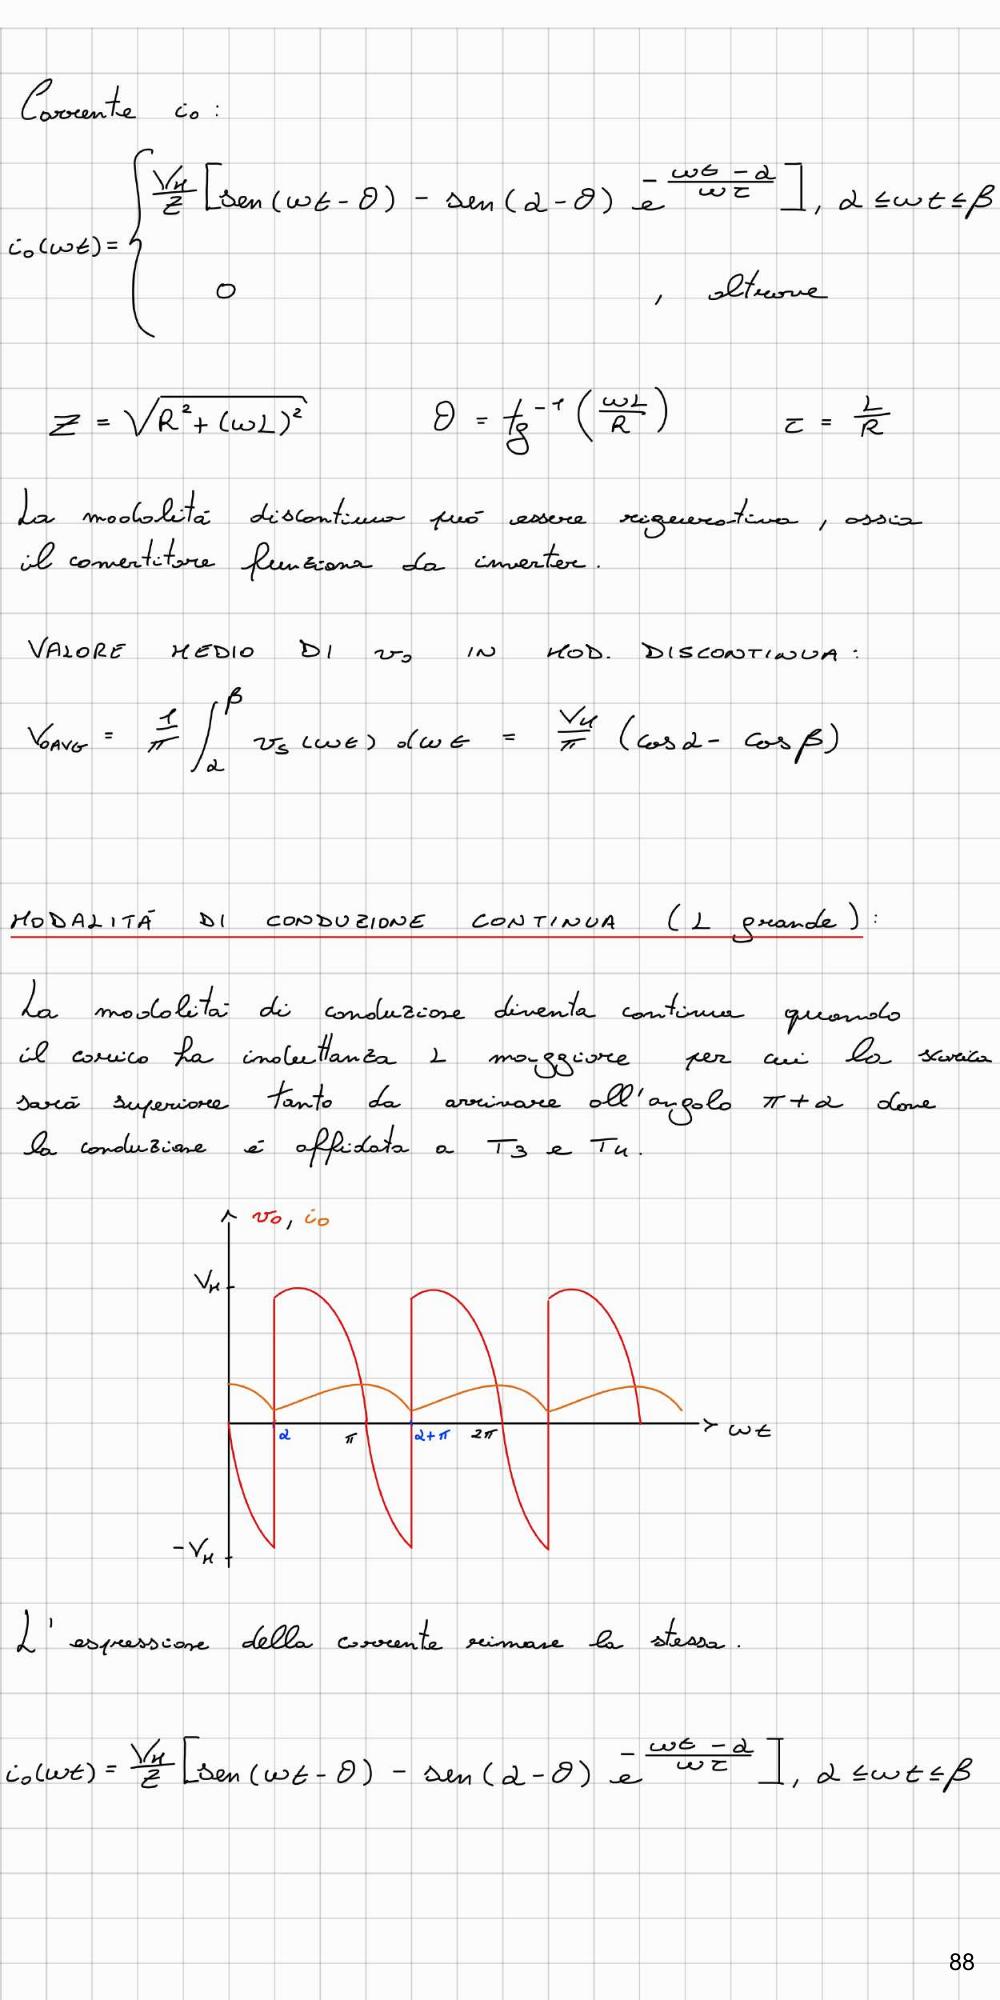 Corrente i₀ :
i₀(ωt) = { V_M/Z [sen(ωt - θ) - sen(α - θ) e^(-(ωt - α)/(ωτ))], α ≤ ωt ≤ β
0 , altrove
Z = √(R² + (ωL)²) θ = tg⁻¹(ωL/R) τ = L/R
La modalità discontinua può essere rigenerativa, ossia
il convertitore funziona da inverter.
VALORE MEDIO DI v₀ IN MOD. DISCONTINUA :
V₀AVG = 1/π ∫_α^β v_s(ωt) dωt = V_M/π (cosα - cosβ)
MODALITÀ DI CONDUZIONE CONTINUA (L grande) :
La modalità di conduzione diventa continua quando
il carico ha induttanza L maggiore per cui la scarica
sarà superiore tanto da arrivare all'angolo π+α dove
la conduzione è affidata a T3 e T4.
v₀, i₀
V_M
α π α+π 2π ωt
-V_M
L'espressione della corrente rimane la stessa.
i₀(ωt) = V_M/Z [sen(ωt - θ) - sen(α - θ) e^(-(ωt - α)/(ωτ))], α ≤ ωt ≤ β
88